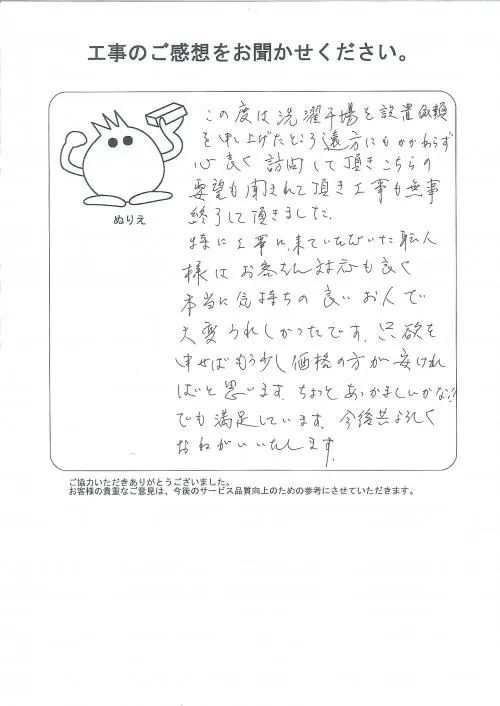 工事のご感想をお聞かせください。
この度は洗濯干場を設置依頼
を申し上げたところ遠方にもかかわらず
心良く訪問して頂きこちらの
要望も聞き入れて頂き工事も無事
終了して頂きました。
特に工事に来ていただいた職人
様はお客さん対応も良く
本当に気持ちの良いお人で
大変うれしかったです。只欲を
申せばもう少し価格の方が安けれ
ばいと思います。ちょっとあつかましいかな!!
でも満足しています。今後共よろしく
おねがいいたします。
ぬりえ
ご協力いただきありがとうございました。
お客様の貴重なご意見は、今後のサービス品質向上のための参考にさせていただきます。